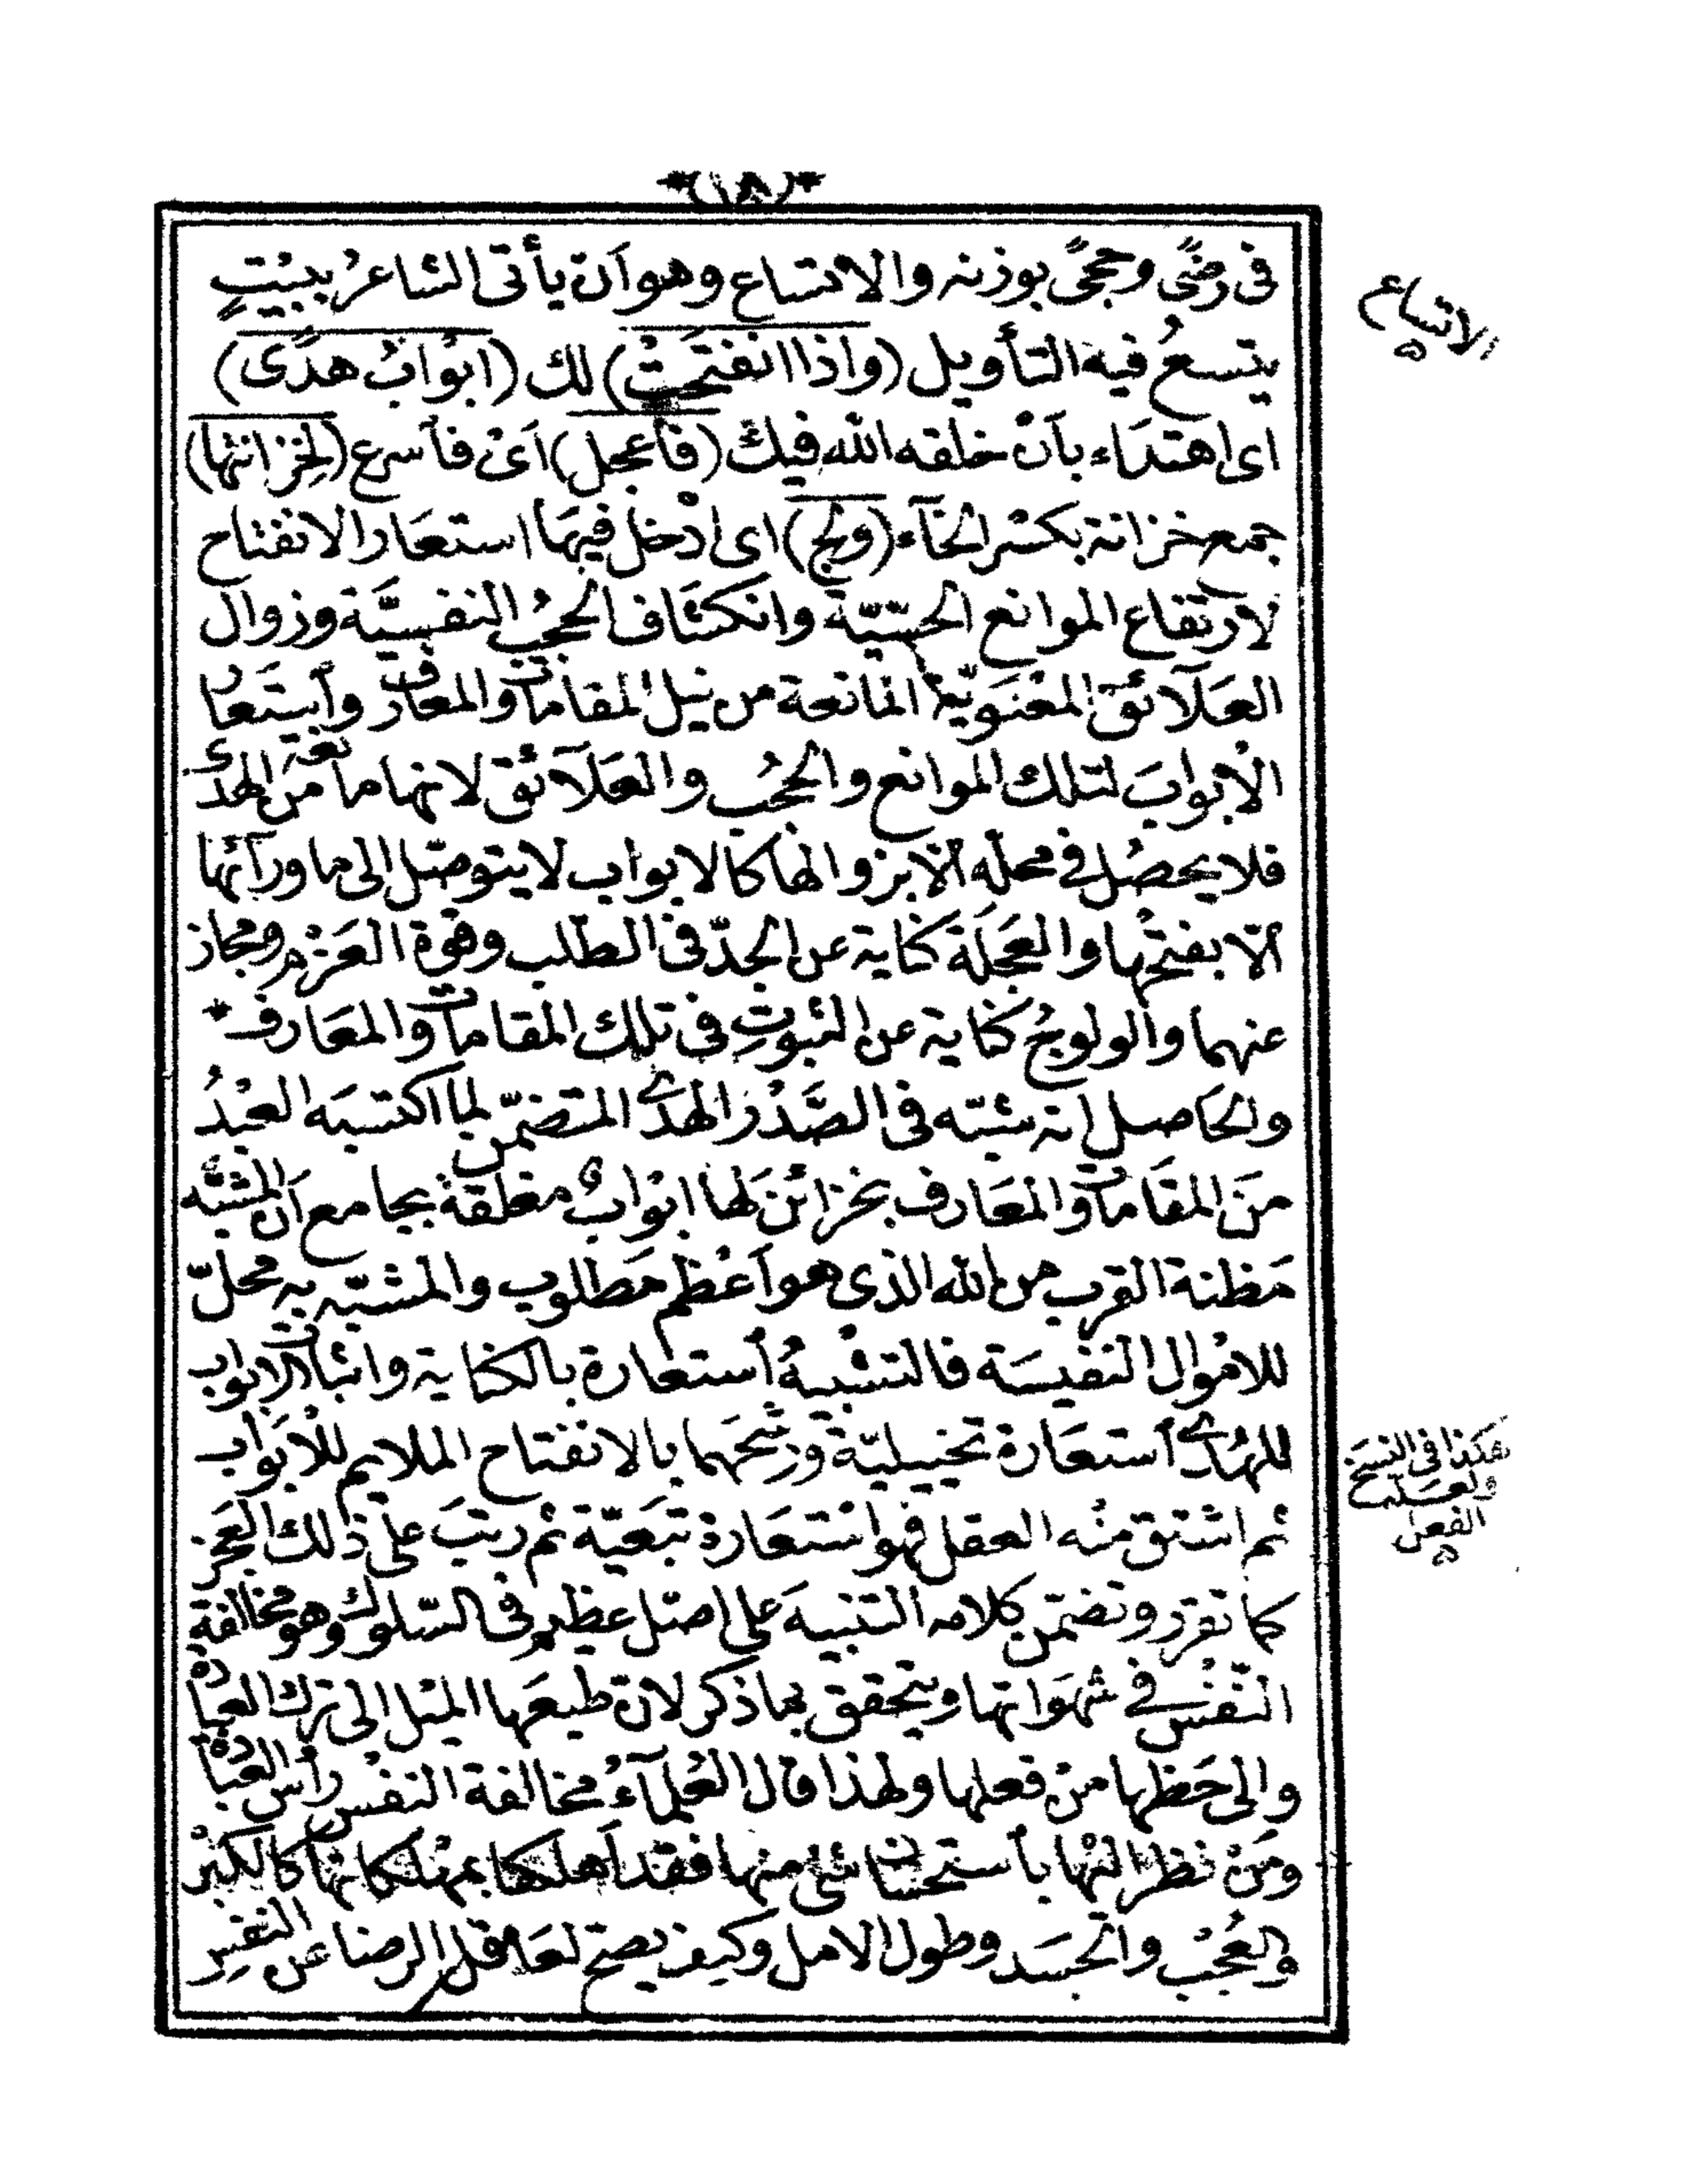 *(١٨)*
فى رضًى وحجًى بوزنه والاتساع وهو اَن يأتى الشاعرُ ببيْتٍ
يتسعُ فيه التأويل (واذا انفتحَتْ) لك (ابْوابُ هدًى)
اى اهتدَاء بأنْ خلقه الله فيك (فاَعجل) اَىْ فاَسرع (لِخزائنها)
جمع خزانة بكسْر الخآء (ولج) اى ادْخل فيهَا استعَار الانفتاح
لارتفاع الموانع الحسّيّة وانكشَاف الحجبُ النفسيَّة وزوال
العَلآئق المعْنَويّة المانعة من نيل المقامات والمعارف وأستَعَار
الاْبوابَ لتلك الموانع والحجُب والعَلآئق لانها مانعة من الهدى
فلا يحصُل فى محله الّا بزوالها كالابواب لا يتوصّل الى ما ورآئها
الّا بفتحْها والعَجَلَة كناية عن الجدّ فى الطّلب وقوّة العَزْم ومجاز
عنهما والولوجُ كناية عن الثبوتِ فى تلك المقامات والمعَارف *
والحَاصل انه شبّه فى الصَّدْر الهدى المتضمّن لما اكتسبَه العبْدُ
منَ المقَامات والمعَارف بخزائنَ لَها ابْوابٌ مغلقة بجامع اَن المشبَّه
مَظنة القرب من الله الذى هو اَعْظم مَطلوب والمشبّه به محلّ
للامْوال النفيسَة فالتشْبيهُ اُستعارة بالكناية واثبات الابواب
للهُدى اُستعَارة تخييليّة ورشّحَهما بالانفتاح الملايم للْاَبوَاب
ثم اشتق منْه العقل فهو اسْتعَارة تبَعيّة ثم رتبَ على ذلك العَجز
كما تقرر وتضمّن كلامه التنبيهَ على اصْل عظيم فى السّلوك وهو مخالفة
النّفْس فى شهَواتها ويتحقق بما ذكر لان طبعَها الميْل الى ترك العبادة
والى حَظها منْ فعلها ولهذا قال العُلمآءُ مخالفة النفْس رأس العبادة
ومَنْ نظر اليْها بأستحسان شئ منها فقد اَهلكها بمهْلكاتها كالكبْر
والعُجْب والحسَد وطول الامل وكيف يصح لعَاقل الرضا عن النفسِ
الاتساع
هكذا فى النسخ
ولعله
الفعل